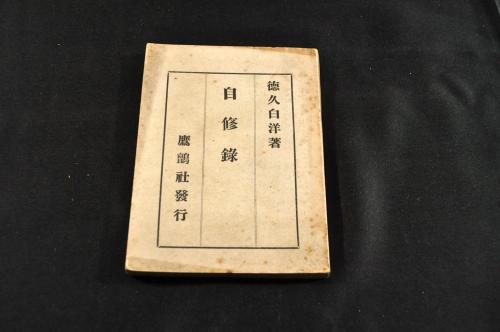 德久白洋著
自修錄
鷹鶻社發行